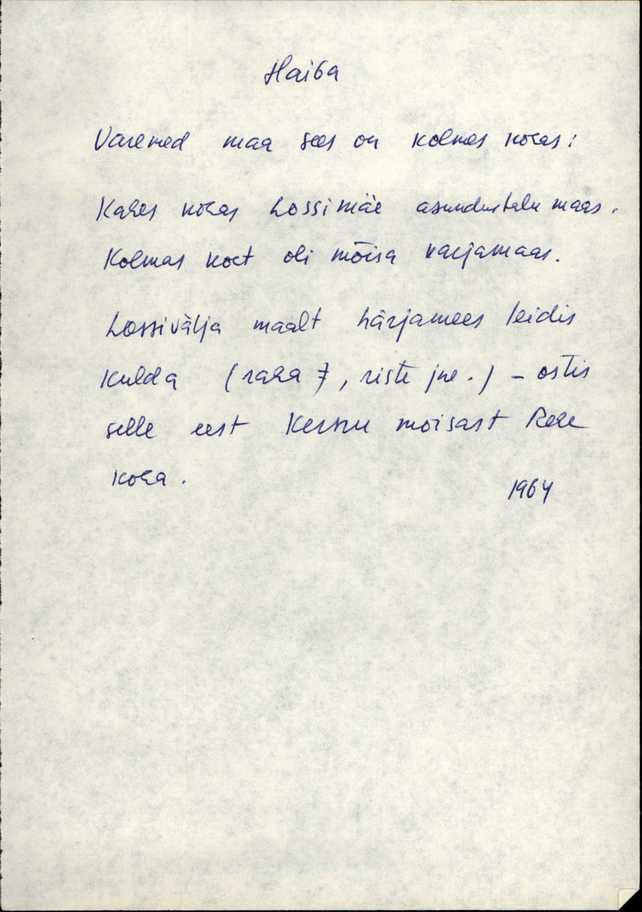 Haiba
Varemed maa sees on kolmes kohas:
Kahes kohas Lossimäe asundustalu maas.
Kolmas koht oli mõisa karjamaas.
Lossivälja maalt härjamees leidis
kulda (raha, riste jne.) – ostis
selle eest Kernu mõisast Rehe
koha.
1964